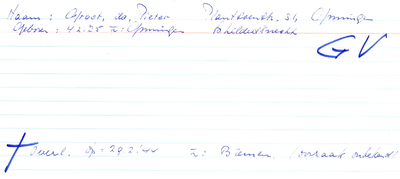 Naam : Groot, de, Pieter Plantsoenstr. 31, Groningen
Geboren : 4.2.25 te: Groningen Schildersknecht
GV
† Overl. op: 29.2.44 te: Bremen (oorzaak onbekend)